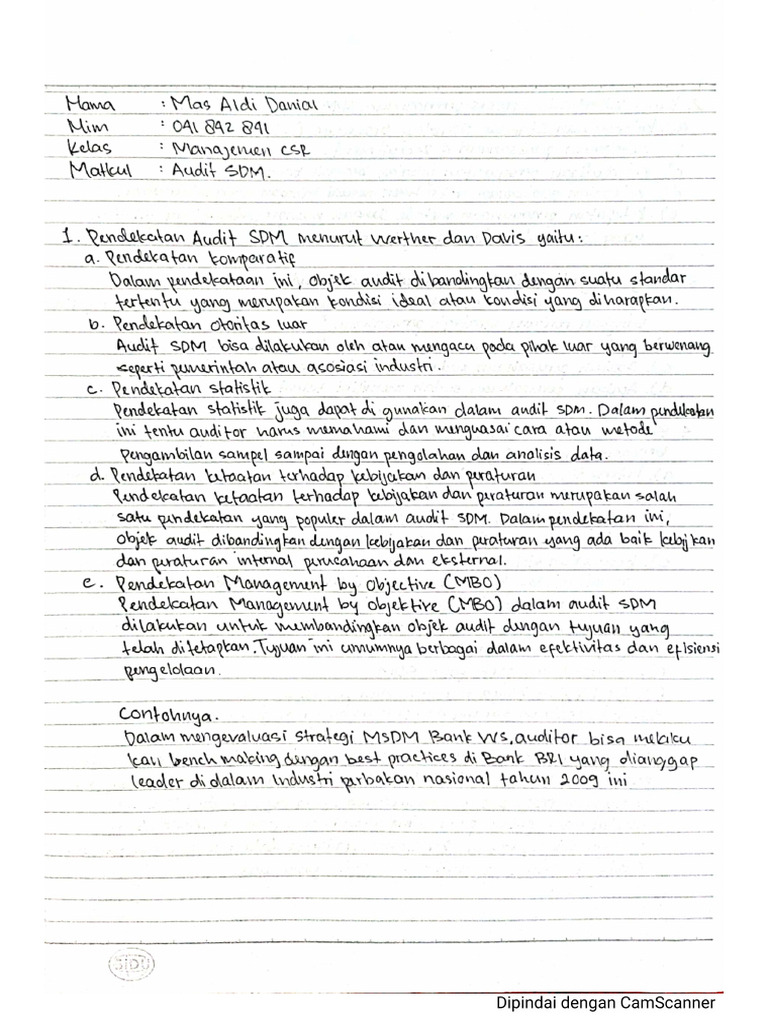 Nama : Mas Aldi Danial
Nim : 041 892 841
Kelas : Manajemen CSR
Matkul : Audit SDM.
1. Pendekatan Audit SDM menurut Werther dan Davis yaitu:
a. Pendekatan komparatif
Dalam pendekataan ini, objek audit dibandingkan dengan suatu standar
tertentu yang merupakan kondisi ideal atau kondisi yang diharapkan.
b. Pendekatan otoritas luar
Audit SDM bisa dilakukan oleh atau mengacu pada pihak luar yang berwenang
seperti pemerintah atau asosiasi industri.
c. Pendekatan statistik
Pendekatan statistik juga dapat di gunakan dalam audit SDM. Dalam pendekatan
ini tentu auditor harus memahami dan menguasai cara atau metode
Pengambilan sampel sampai dengan pengolahan dan analisis data.
d. Pendekatan ketaatan terhadap kebijakan dan peraturan
Pendekatan ketaatan terhadap kebijakan dan peraturan merupakan salah
satu pendekatan yang populer dalam audit SDM. Dalam pendekatan ini,
objek audit dibandingkan dengan kebijakan dan peraturan yang ada baik kebijkan
dan peraturan internal perusahaan dan eksternal.
e. Pendekatan Management by Objective (MBO)
Pendekatan Management by Objektive (MBO) dalam audit SDM
dilakukan untuk membandingkan objek audit dengan tujuan yang
telah ditetapkan. Tujuan ini umumnya berbagai dalam efektivitas dan efisiensi
pengelolaan.
Contohnya.
Dalam mengevaluasi strategi MSDM Bank WS, auditor bisa melaku
kan bench making dengan best practices di Bank BRI yang dianggap
leader di dalam Industri perbakan nasional tahun 2009 ini
SIDU
Dipindai dengan CamScanner